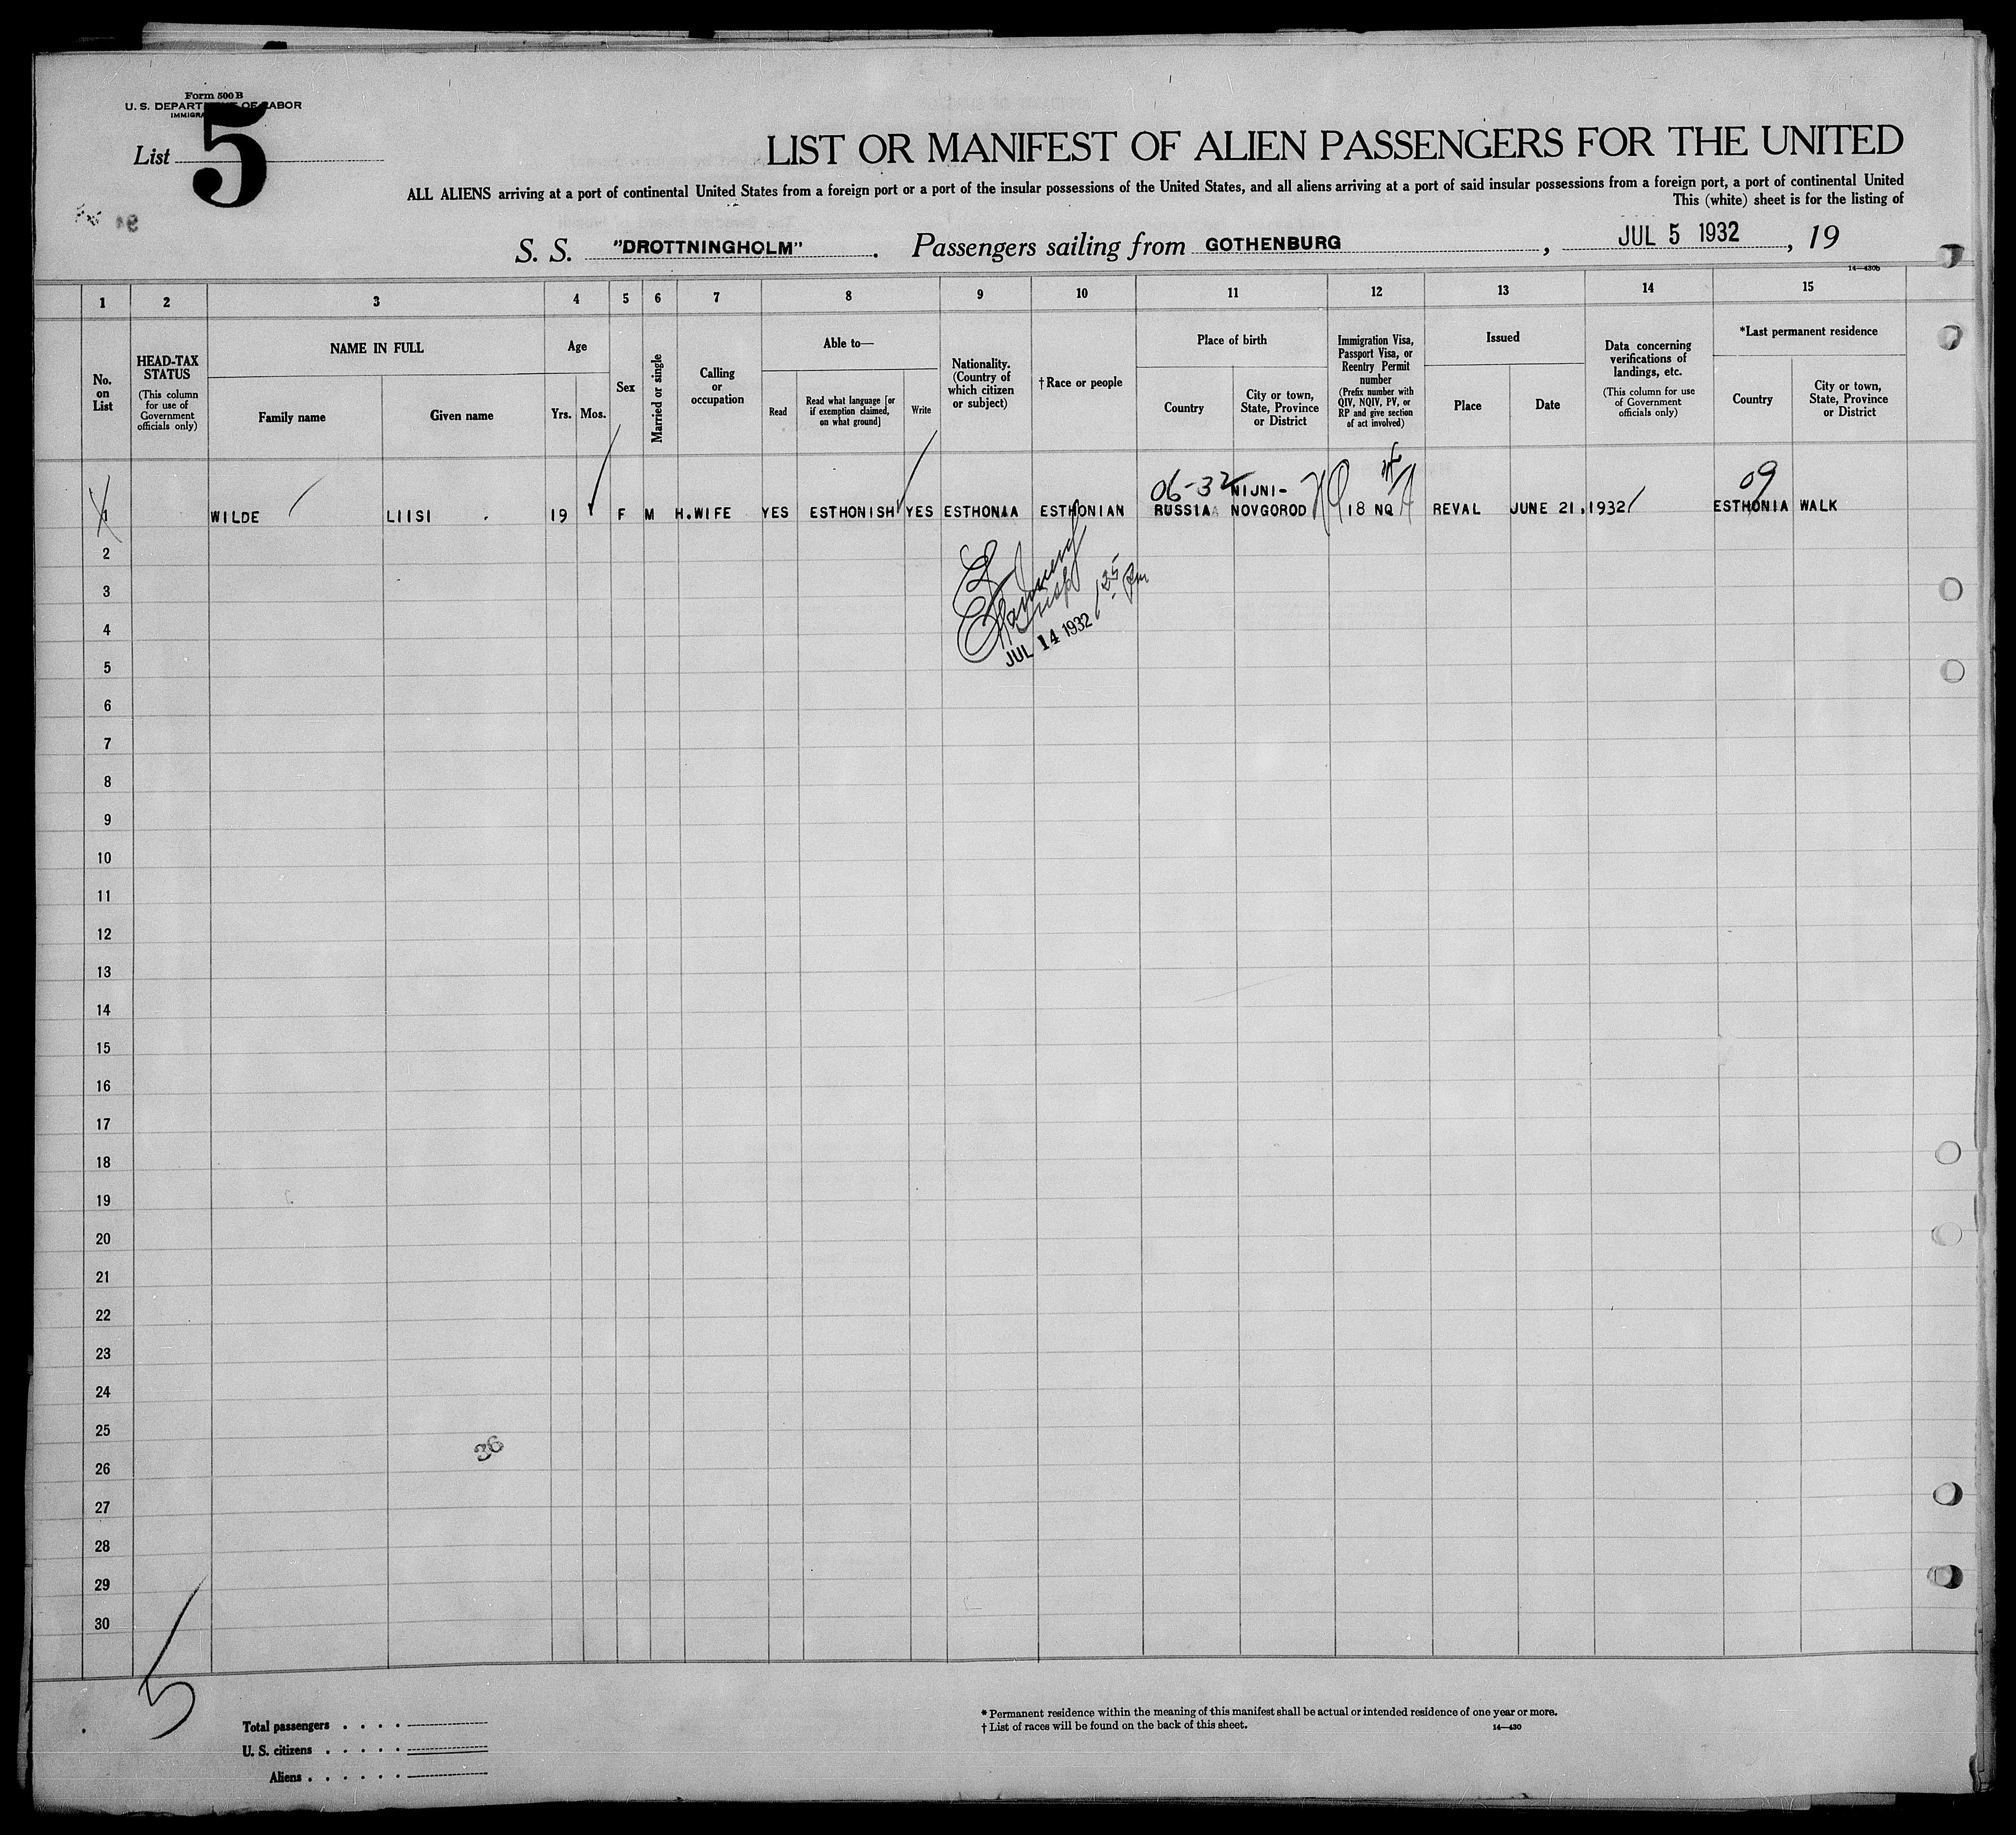 Form 500 B
U. S. DEPARTMENT OF LABOR
List 5
LIST OR MANIFEST OF ALIEN PASSENGERS FOR THE UNITED
ALL ALIENS arriving at a port of continental United States from a foreign port or a port of the insular possessions of the United States, and all aliens arriving at a port of said insular possessions from a foreign port, a port of continental United
This (white) sheet is for the listing of
S. S. "DROTTNINGHOLM". Passengers sailing from GOTHENBURG, JUL 5 1932, 19
14—430b
1 2 3 4 5 6 7 8 9 10 11 12 13 14 15
No. on List
HEAD-TAX STATUS
(This column for use of Government officials only)
NAME IN FULL
Family name
Given name
Age
Yrs.
Mos.
Sex
Married or single
Calling or occupation
Able to—
Read
Read what language [or if exemption claimed, on what ground]
Write
Nationality. (Country of which citizen or subject)
† Race or people
Place of birth
Country
City or town, State, Province or District
Immigration Visa, Passport Visa, or Reentry Permit number
(Prefix number with QIV, NQIV, PV, or RP and give section of act involved)
Issued
Place
Date
Data concerning verifications of landings, etc.
(This column for use of Government officials only)
*Last permanent residence
Country
City or town, State, Province or District
06-32 NIJNI- 09
1 WILDE LIISI 19 F M H.WIFE YES ESTHONISH YES ESTHONIA ESTHONIAN RUSSIA NOVGOROD 18 NQ REVAL JUNE 21, 1932 ESTHONIA WALK
2
3
4
JUL 14 1932
5
6
7
8
9
10
11
12
13
14
15
16
17
18
19
20
21
22
23
24
25
26
27
28
29
30
5
Total passengers . . . .
U. S. citizens . . . . .
Aliens . . . . . .
* Permanent residence within the meaning of this manifest shall be actual or intended residence of one year or more.
† List of races will be found on the back of this sheet.
14—430